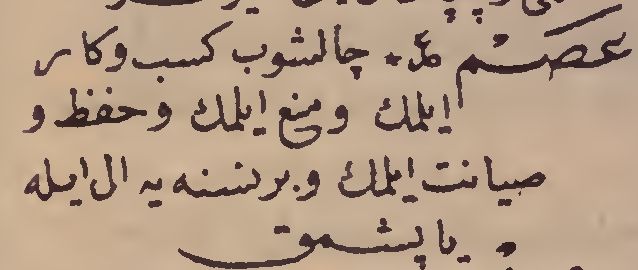 عصم چالشوب كسب و كار
ايلمك و منع ايلمك و حفظ و
صيانت ايلمك و بر نسنه يه ال ايله
ياپشمق